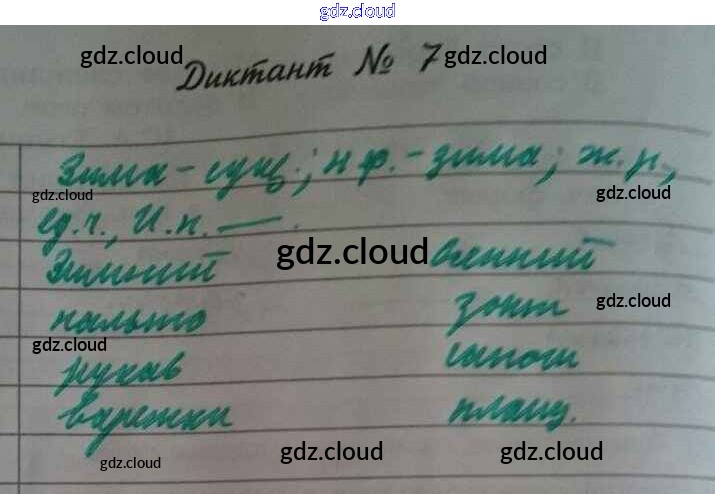 gdz.cloud
gdz.cloud gdz.cloud
Диктант № 7
Зима - сущ.; н.ф. - зима; ж.р.,
gdz.cloud gdz.cloud
ед.ч., И.п. —.
gdz.cloud
Зимний осенний
пальто зонт
gdz.cloud
gdz.cloud
рукав сапоги
варежки плащ.
gdz.cloud gdz.cloud gdz.cloud